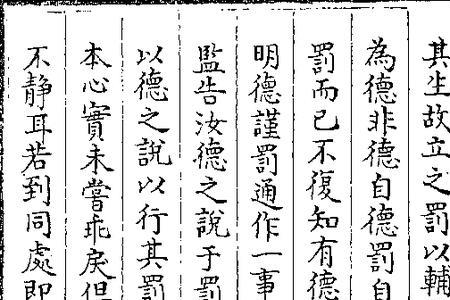 其生故立之罰以輔
為德非德自德罰自
罰而已不復知有德
明德謹罰通作一事
監告汝德之說于罰
以德之說以行其罰
本心實未嘗乖戾但
不静耳若到同處即